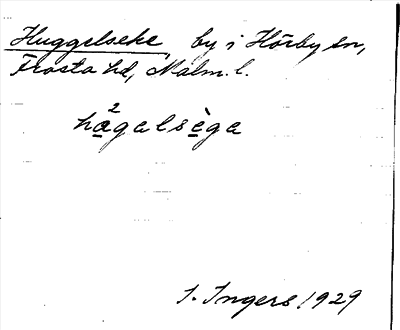 Huggelseke, by i Hörby sn,
Frosta hd, Malm. l.
hagalsèga
I. Ingers 1929